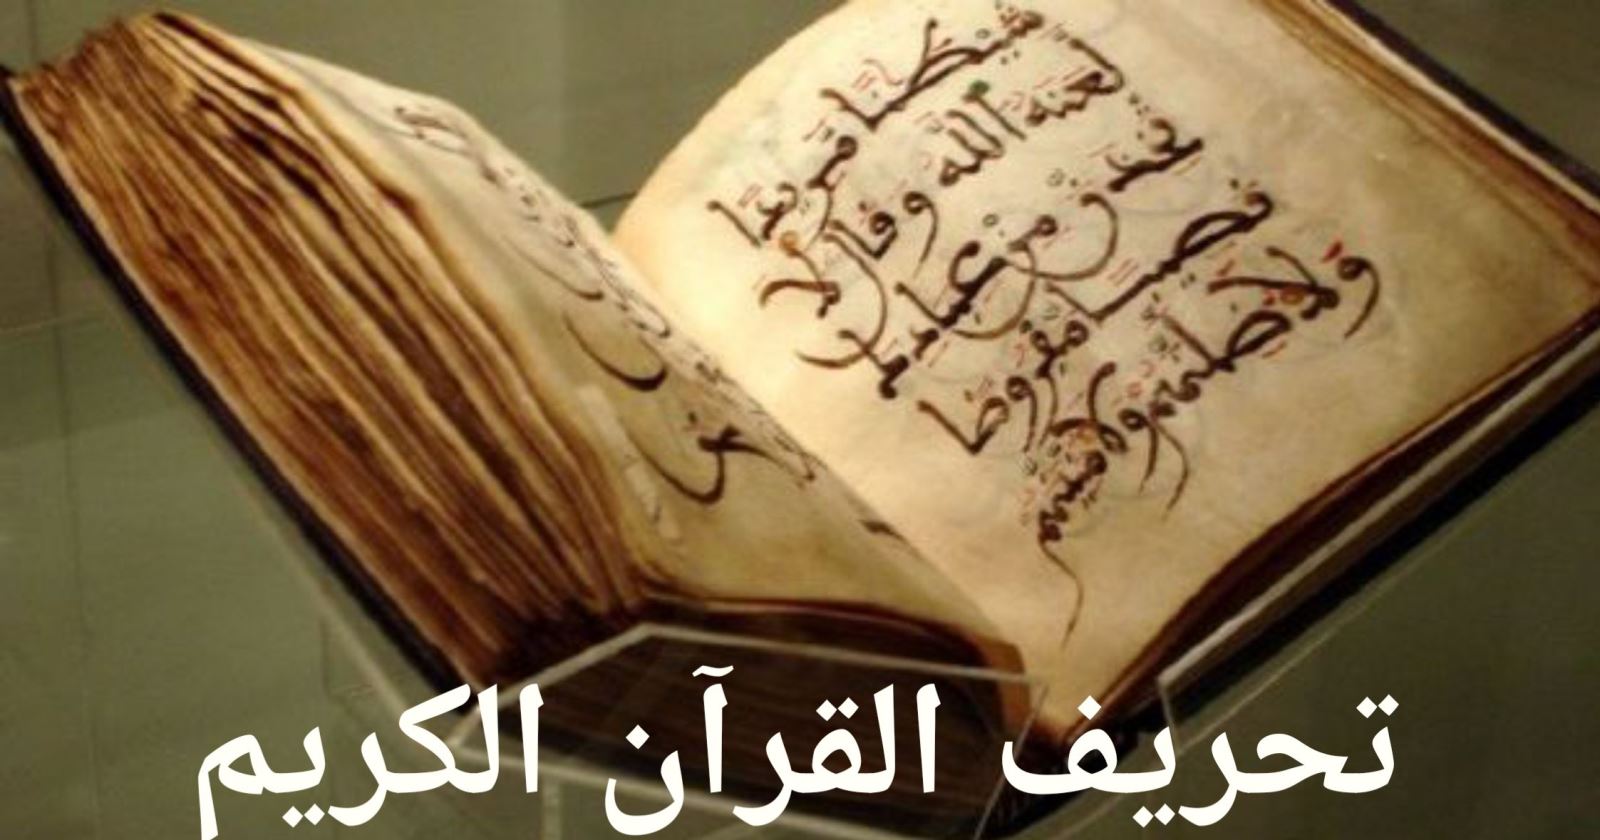 شيطنا مريدا
لعنه الله وقال لا
تخذن من عبادك
نصيبا مفروضا
ولاضلنهم ولامنينهم
تحريف القرآن الكريم